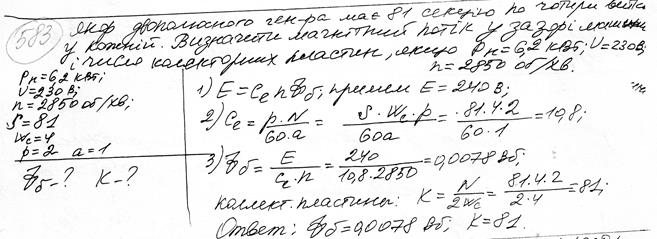 583
якор двополюсного ген-ра має 81 секцію по чотири витка
у кожній. Визначити магнітний потік у зазорі машини
і число колекторних пластин, якщо Pн=6,2 кВт; U=230В;
n=2850 об/хв.
Pн=6,2 кВт;
U=230 В;
n=2850 об/хв;
S=81
Wc=4
p=2 a=1
Фδ-? K-?
1) E=Ce n Фδ; примем E=240 В;
2) Ce = p·N / 60·a = S·Wc·p / 60a = 81·4·2 / 60·1 = 10,8;
3) Фδ = E / Ce·n = 240 / 10,8·2850 = 0,0078 Вб;
коллект. пластины: K = N / 2Wc = 81·4·2 / 2·4 = 81;
Ответ: Фδ=0,0078 Вб; K=81.